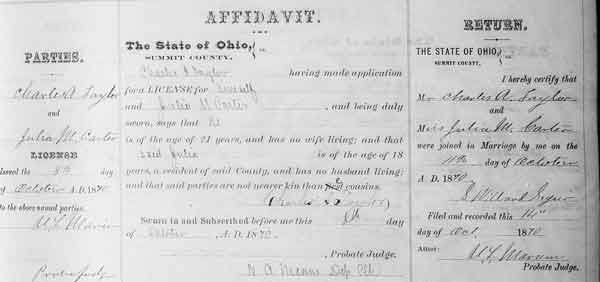 PARTIES.
Charles A Taylor
and
Julia M. Carter
LICENSE
Issued the 8th day
of October A. D. 1870
to the above named parties.
Probate Judge
AFFIDAVIT.
The State of Ohio, } ss.
SUMMIT COUNTY.
Charles A Taylor having made application
for a LICENSE for himself
and Julia M Carter, and being duly
sworn, says that he
is of the age of 21 years, and has no wife living; and that
said Julia is of the age of 18
years, a resident of said County, and has no husband living;
and that said parties are not nearer kin than first cousins.
Charles A Taylor
Sworn to and Subscribed before me this 8th day
of October, A. D. 1870.
, Probate Judge.
RETURN.
THE STATE OF OHIO, } ss.
SUMMIT COUNTY.
I hereby certify that
Mr Charles A. Taylor
and
Miss Julia M. Carter
were joined in Marriage by me on the
11th day of October
A. D. 1870
Filed and recorded this
day of Oct. 1870
Attest:
Probate Judge.